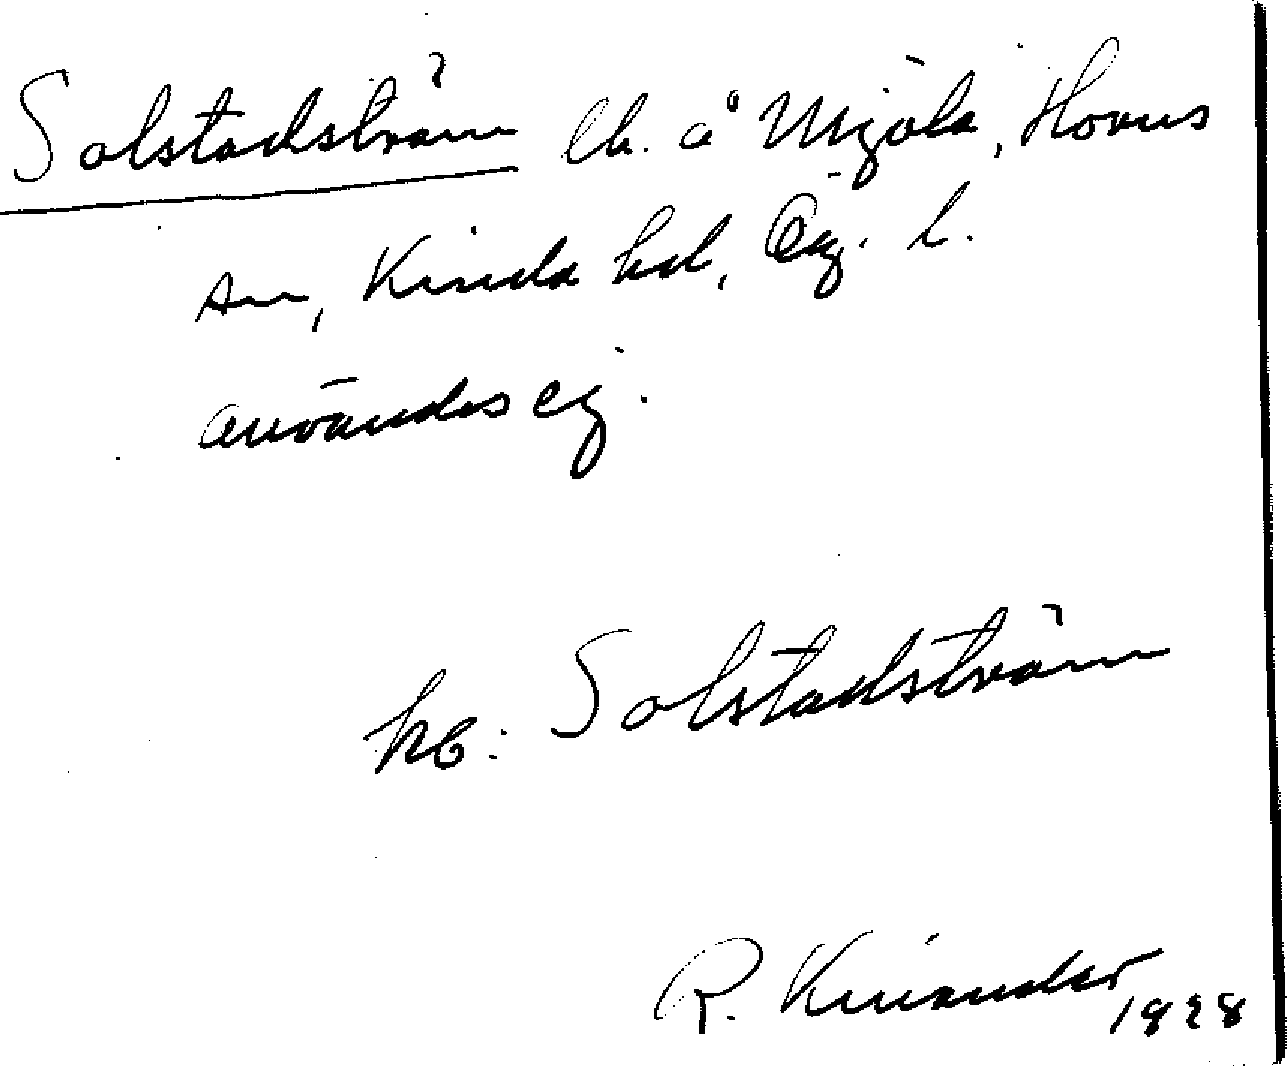 Solstadström lh. å Mjöla, Horns
sn, Kinda hd, Ög. l.
användes ej.
hc: Solstadström
R. Kinander
1928